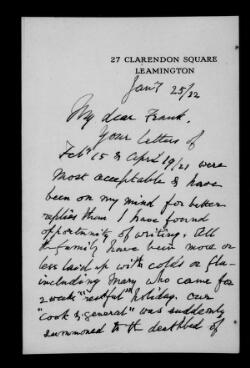 27 CLARENDON SQUARE
LEAMINGTON
Jan'y 25/22
My dear Frank.
Your letters of
Feb'y 15 & April 19/21 were
most acceptable & have
been on my mind for better
replies than I have found
opportunity of writing. All
the family have been more or
less laid up with colds or flu -
including Mary who came for
2 weeks "restful" holiday. Our
"cook & general" was suddenly
summoned to the deathbed of